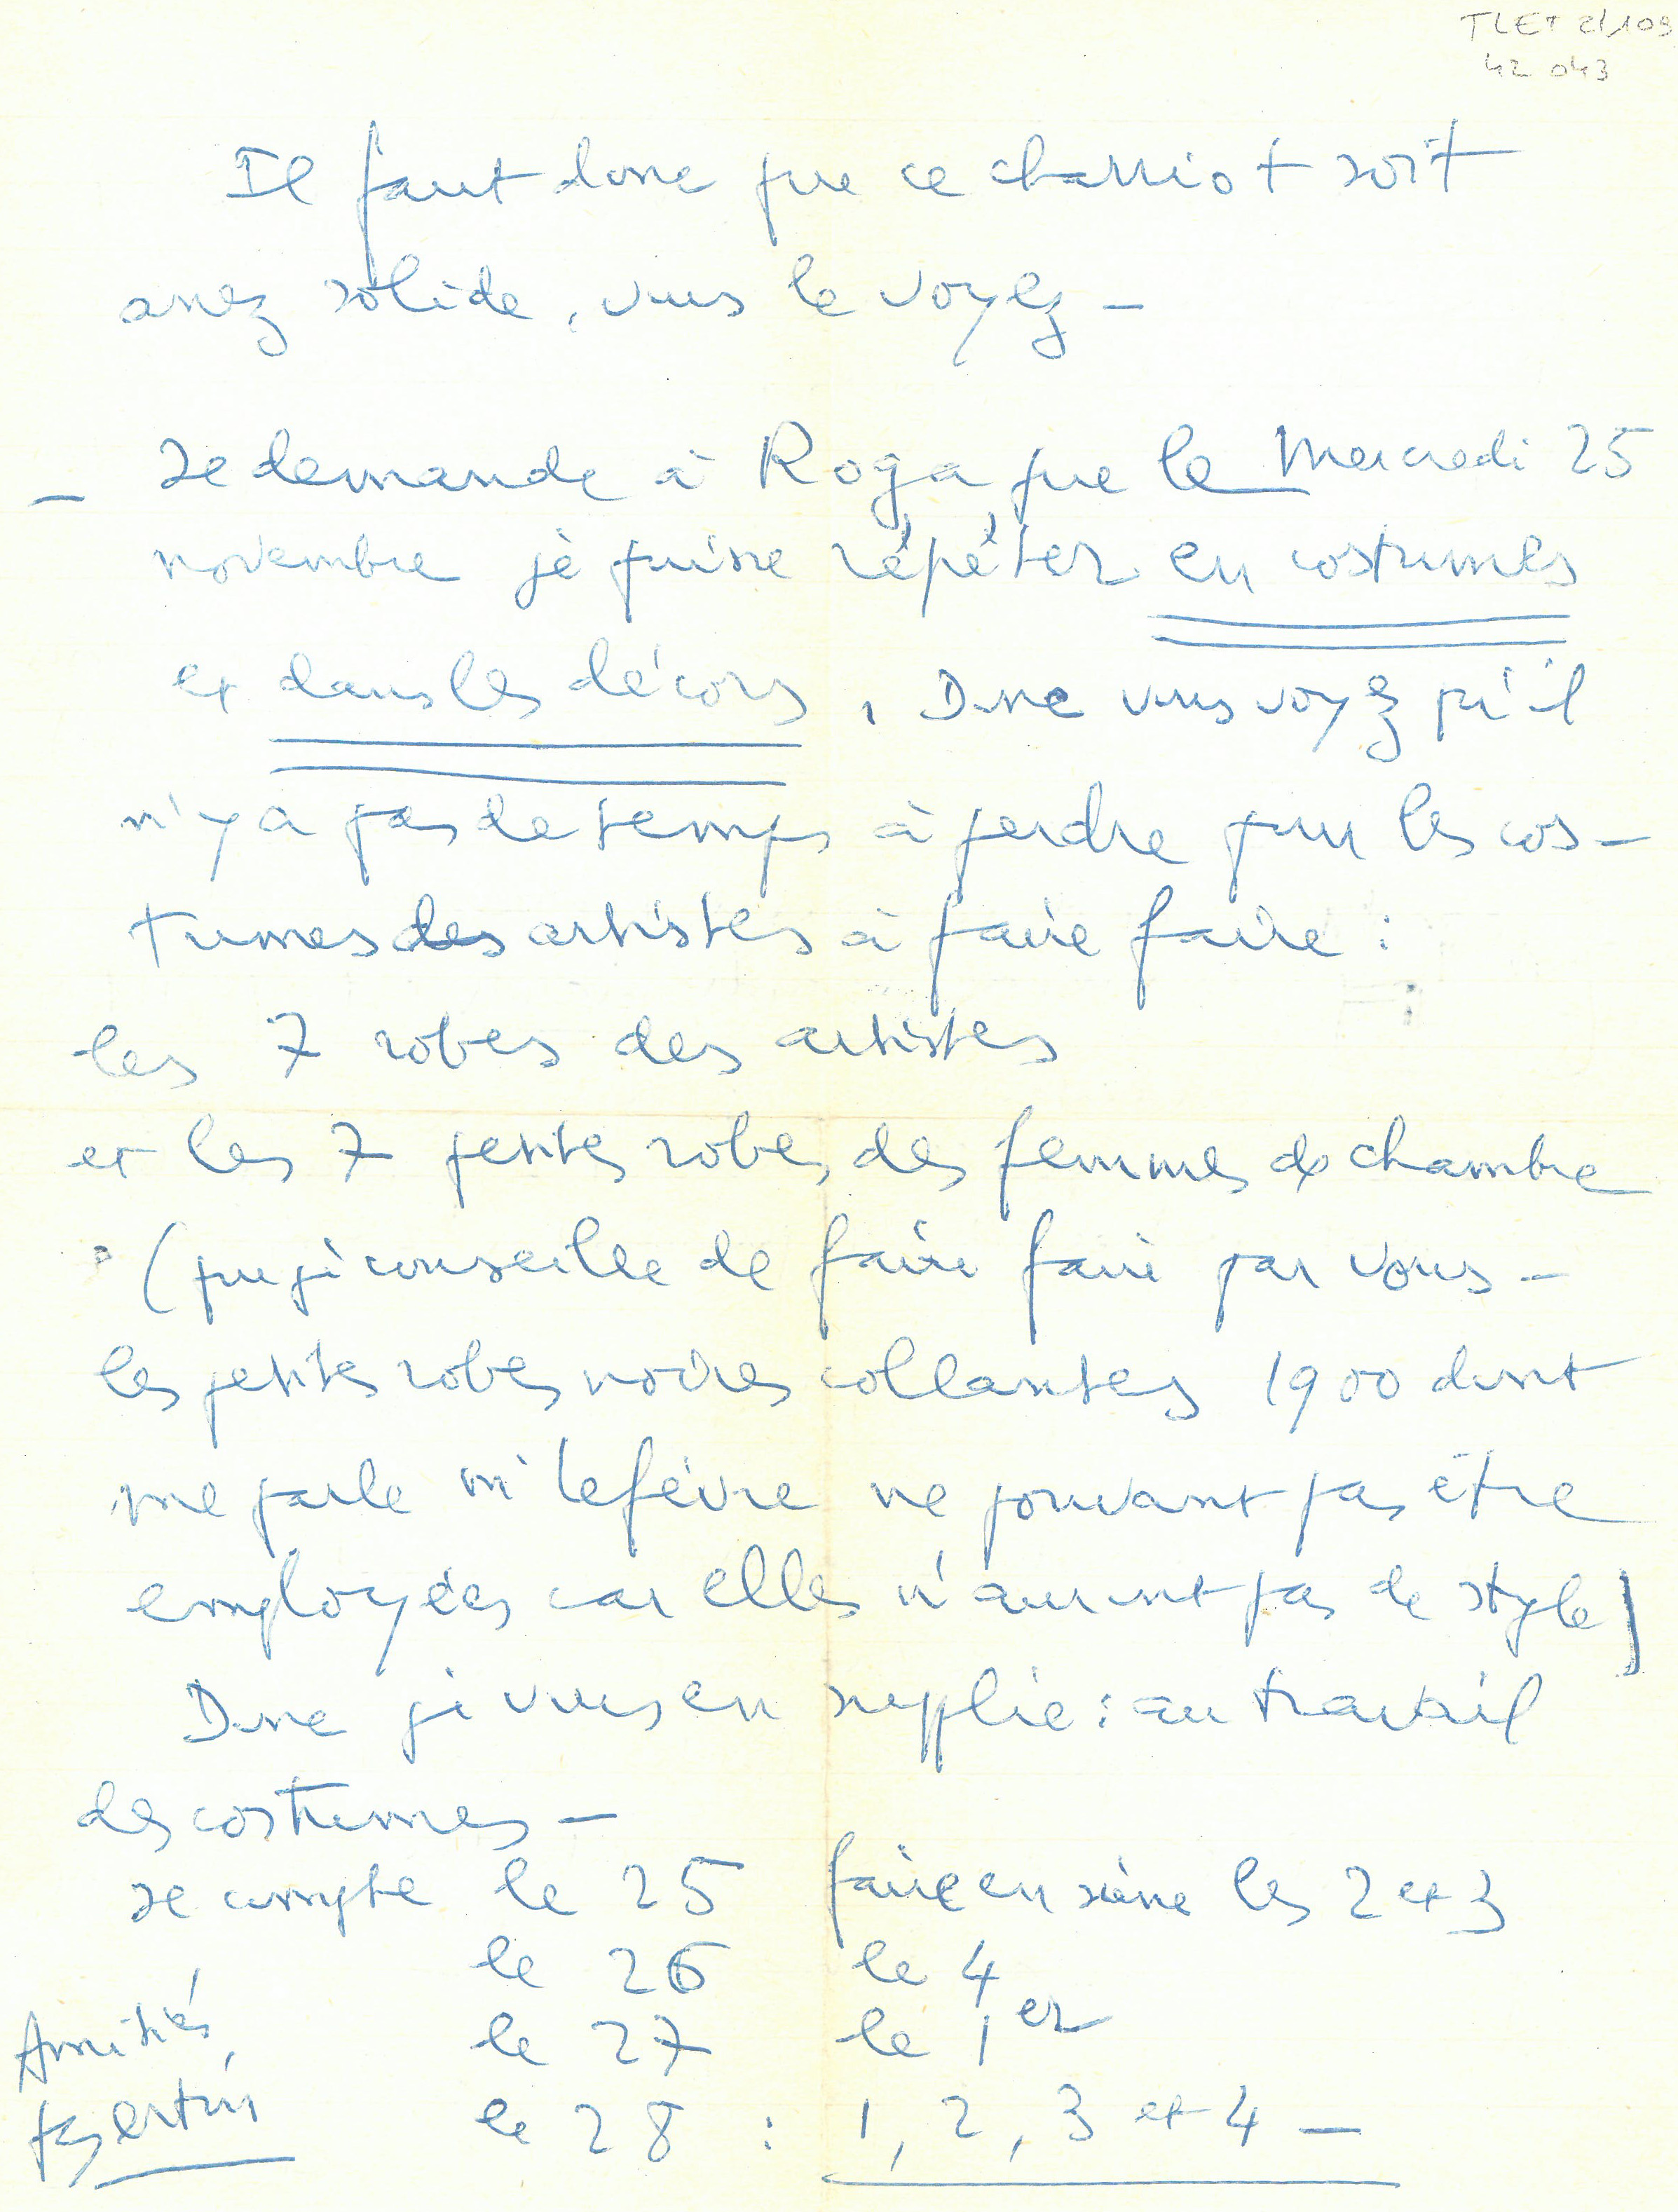 TLET 2/109
42 043
Il faut donc que ce charriot soit
assez solide, vous le voyez -
- Je demande à Roga que le Mercredi 25
novembre je puisse répéter en costumes
et dans les décors, Donc vous voyez qu'il
n'y a pas de temps à perdre pour les cos-
tumes des artistes à faire faire :
les 7 robes des artistes
et les 7 petites robes des femmes de chambre
(que je conseille de faire faire par vous -
les petites robes noires collantes 1900 dont
me parle Mr Lefèvre ne pouvant pas être
employées car elles n'auront pas de style)
Donc je vous en supplie : au travail
des costumes -
Je compte le 25 faire en scène les 2 et 3
le 26 le 4
le 27 le 1er
le 28 : 1, 2, 3 et 4 -
Amitiés,